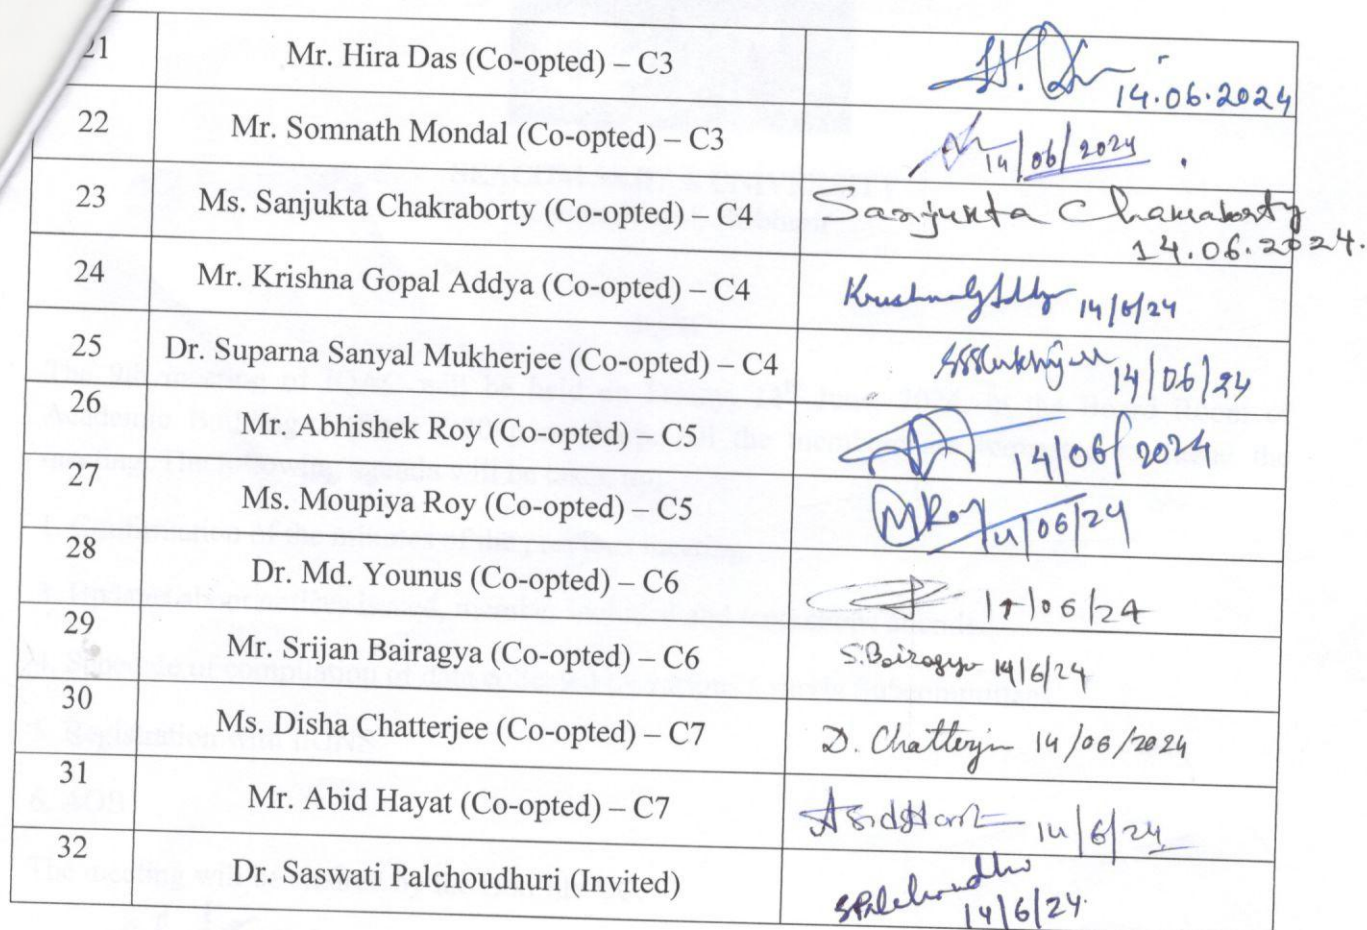 21 Mr. Hira Das (Co-opted) – C3 14.06.2024
22 Mr. Somnath Mondal (Co-opted) – C3 14/06/2024
23 Ms. Sanjukta Chakraborty (Co-opted) – C4 Sanjukta Chakraborty
14.06.2024.
24 Mr. Krishna Gopal Addya (Co-opted) – C4 14/6/24
25 Dr. Suparna Sanyal Mukherjee (Co-opted) – C4 14/06/24
26 Mr. Abhishek Roy (Co-opted) – C5 14/06/2024
27 Ms. Moupiya Roy (Co-opted) – C5 MRoy 14/06/24
28 Dr. Md. Younus (Co-opted) – C6 /06/24
29 Mr. Srijan Bairagya (Co-opted) – C6 S.Bairagya 14/6/24
30 Ms. Disha Chatterjee (Co-opted) – C7 D. Chatterjee 14/06/2024
31 Mr. Abid Hayat (Co-opted) – C7 14/6/24
32 Dr. Saswati Palchoudhuri (Invited) 14/6/24